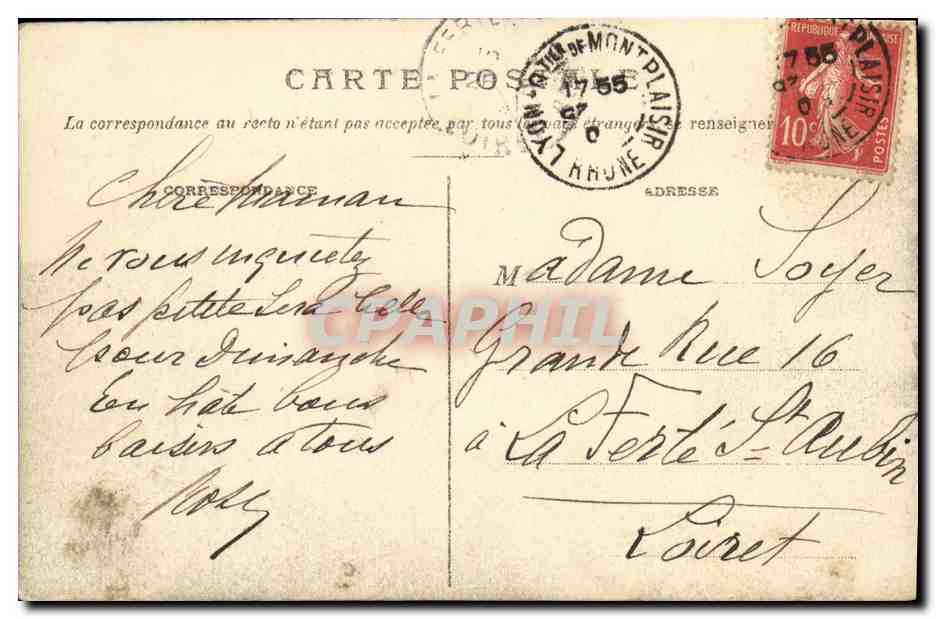 CARTE POSTALE
La correspondance au recto n'étant pas acceptée par tous les pays étrangers, se renseigner
CORRESPONDANCE
ADRESSE
LYON - Q-TIER DE MONTPLAISIR
17 55
RHONE
RÉPUBLIQUE FRANÇAISE
10c
POSTES
Chère Maman
Ne vous inquietez
pas petite sera belle
pour Dimanche
En hâte bons
baisers a tous
Madame Soyer
Grande Rue 16
à La Ferté St Aubin
Loiret
CPAPHIL